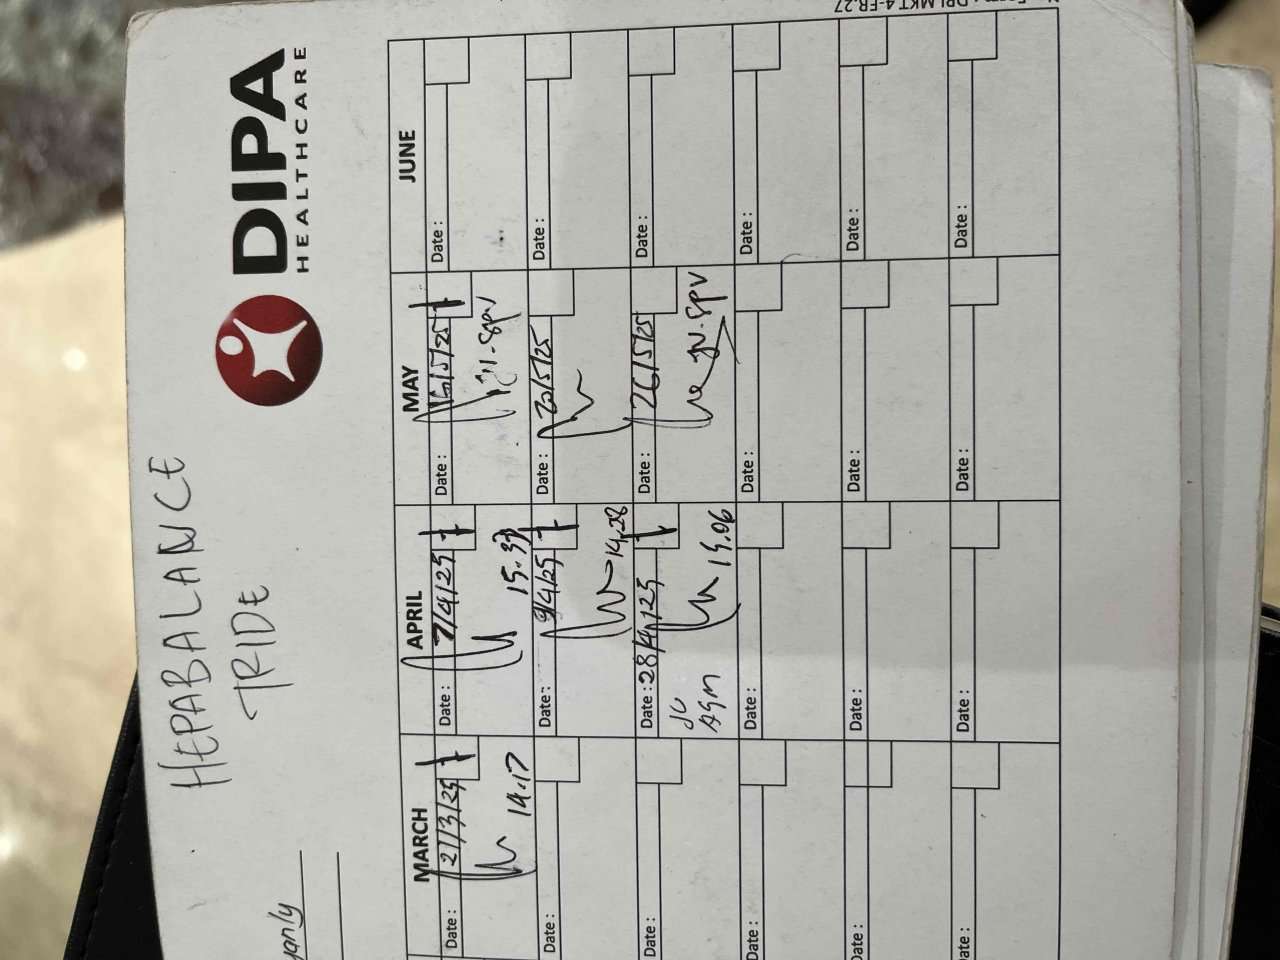 HEPABALANCE
TRIDE
DIPA
HEALTHCARE
yanly
MARCH APRIL MAY JUNE
Date : 21/3/25 Date : 7/4/25 Date : 16/5/25 Date :
14.17 15.37 spv
Date : Date : 9/4/25 Date : 20/5/25 Date :
14.28
Date : Date : 28/4/25 Date : 26/5/25 Date :
15.06 spv
ASM
Date : Date : Date : Date :
Date : Date : Date : Date :
Date : Date : Date : Date :